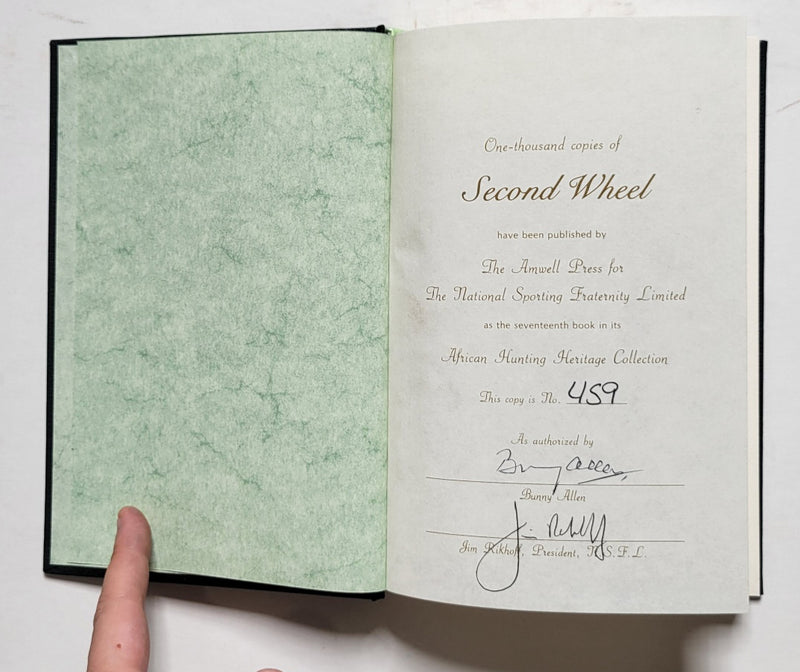 One-thousand copies of
Second Wheel
have been published by
The Amwell Press for
The National Sporting Fraternity Limited
as the seventeenth book in its
African Hunting Heritage Collection
This copy is No. 459
As authorized by
Bunny Allen
Bunny Allen
Jim Rikhoff
Jim Rikhoff, President, N.S.F.L.